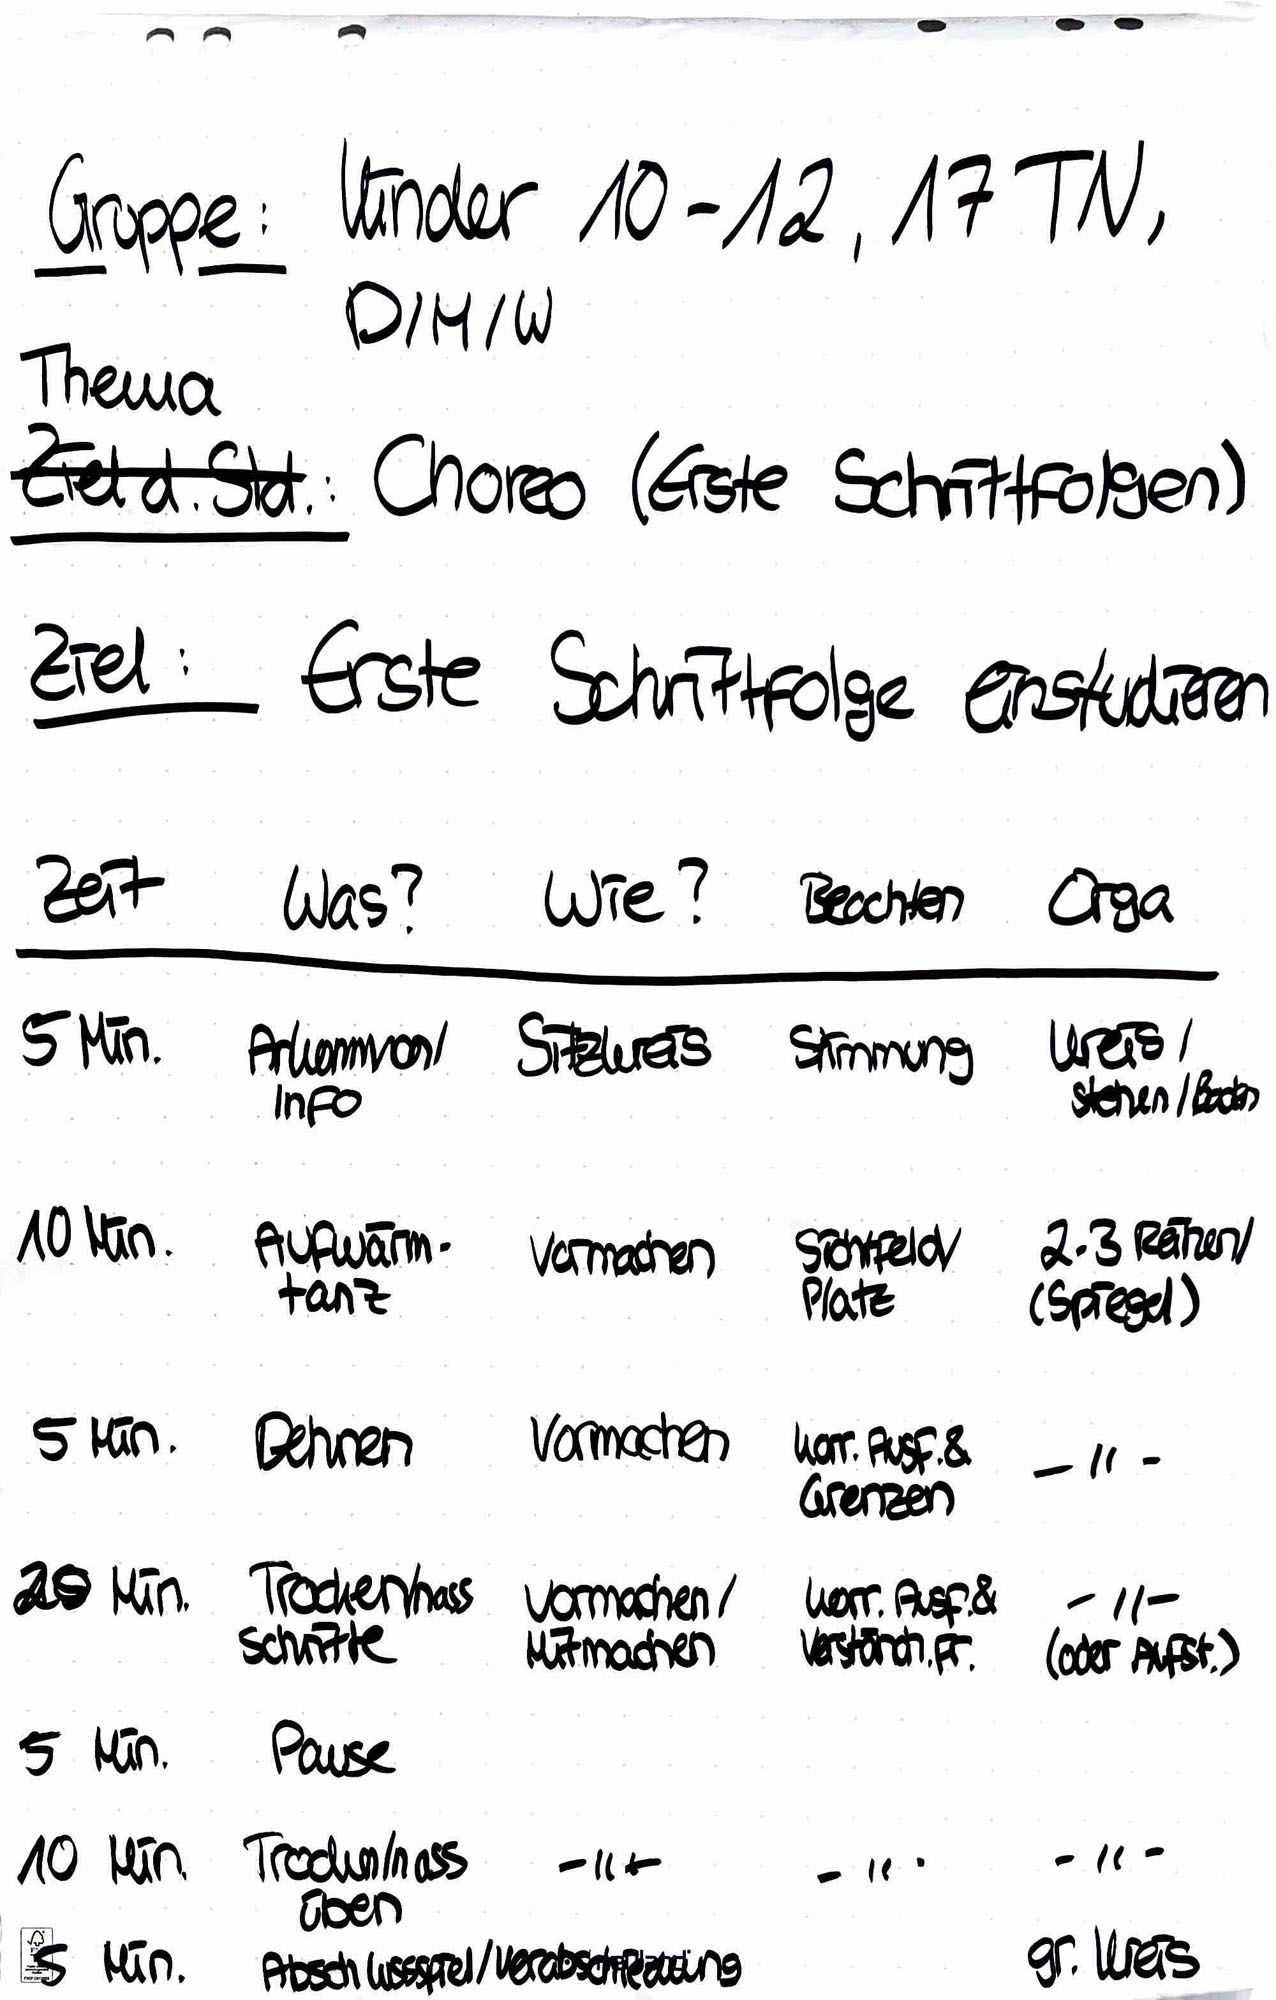 Gruppe: Kinder 10-12, 17 TN,
D/M/W
Thema
Ziel d. Std.: Choreo (Erste Schrittfolgen)
Ziel: Erste Schrittfolge einstudieren
Zeit Was? Wie? Beachten Orga
5 Min. Ankommen/ Sitzkreis Stimmung Kreis/
Info stehen/Boden
10 Min. Aufwärm- Vormachen Sichtfeld/ 2-3 Reihen/
tanz Platz (Spiegel)
5 Min. Dehnen Vormachen korr. Ausf. & -"-
Grenzen
20 Min. Trocken/nass Vormachen/ korr. Ausf. & -"-
Schritte Mitmachen Verständ. Fr. (oder Aufst.)
5 Min. Pause
10 Min. Trocken/nass -"- -"- -"-
üben
5 Min. Abschlussspiel/Verabschiedung gr. Kreis